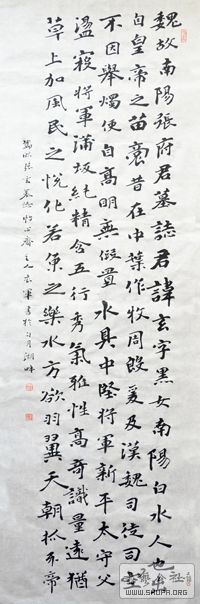 魏故南陽張府君墓誌君諱玄字黑女南陽白水人也出
自皇帝之苗裔昔在中葉作牧周殷爰及漢魏司徒司空
不因舉燭便自高明無假置水具中堅將軍新平太守父
盪寇將軍蒲坂純精含五行秀氣雅性高奇識量遠猶
草上加風民之悅化若魚之樂水方欲羽翼天朝抓牙帝
張玄墓誌怡心齋主人軍書於月湖畔
WWW.SHUFA.ORG